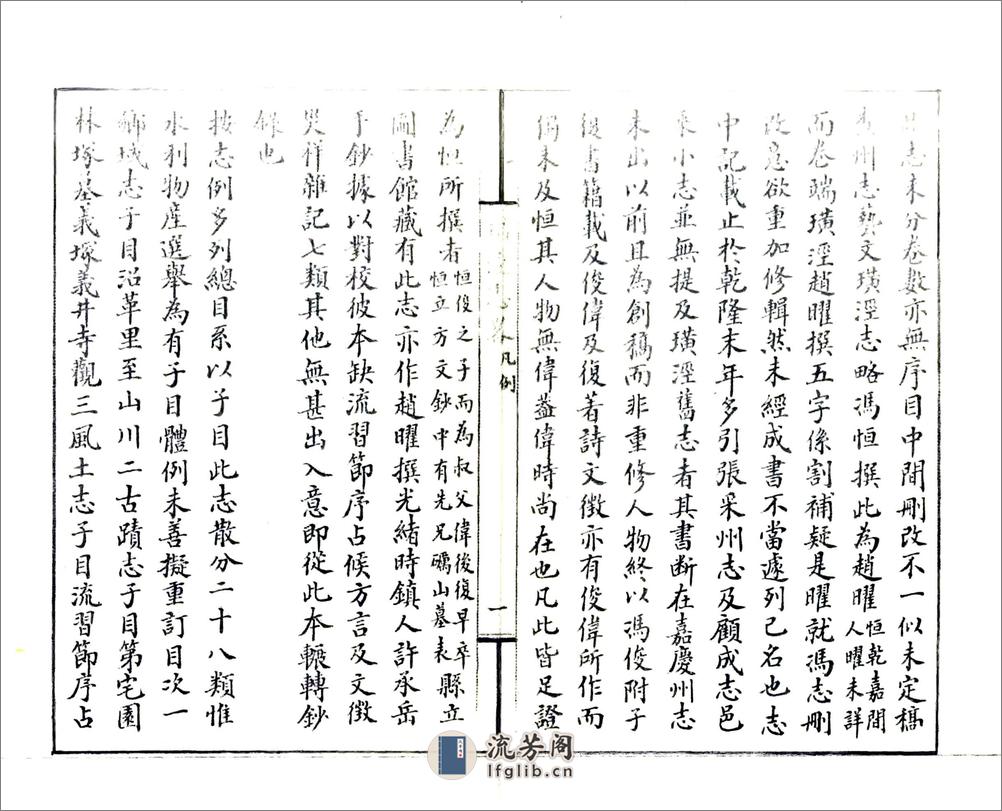 志未分卷數亦無序目中間刪改不一似未定稿
州志藝文璜涇志略馮恒撰此為趙曜恒乾嘉間人曜未詳
而卷端璜涇趙曜撰五字係割補疑是曜就馮志刪
改意欲重加修輯然未經成書不當遽列己名也志
中記載止於乾隆末年多引張采州志及顧成志邑
乘小志並無提及璜涇舊志者其書斷在嘉慶州志
未出以前且為創稿而非重修人物終以馮俊附子
復書籍載及俊偉及復著詩文徵亦有俊偉所作而
獨未及恒其人物無偉蓋偉時尚在也凡此皆足證
凡例
一
為恒所撰者恒俊之子而為叔父偉後復早卒縣立恒立方文鈔中有先兄礪山墓表
圖書館藏有此志亦作趙曜撰光緒時鎮人許承岳
手鈔據以對校彼本缺流習節序占候方言及文徵
災祥雜記七類其他無甚出入意即從此本輾轉鈔
錄也
按志例多列總目系以子目此志散分二十八類惟
水利物產選舉為有子目體例未善擬重訂目次一
鄉域志子目沿革里至山川二古蹟志子目第宅園
林塚墓義塚義井寺觀三風土志子目流習節序占
流芳阁
lfglib.cn